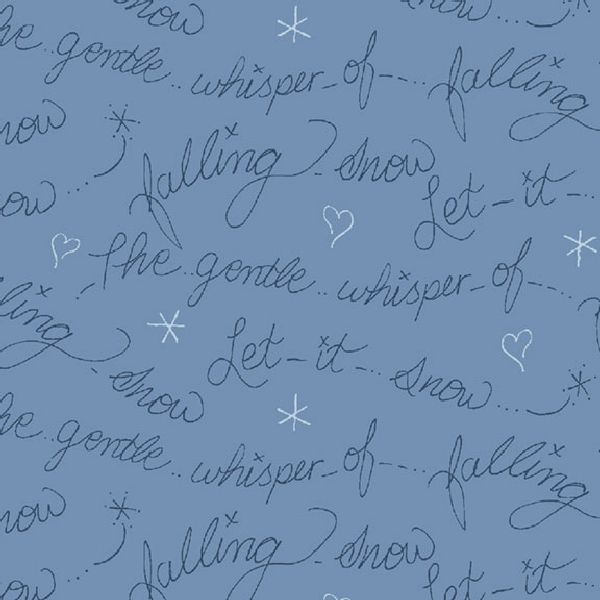 snow
snow
he gentle whisper of falling
now
falling snow
ow
Let it
The gentle whisper of
ling snow
Let it snow
he gentle whisper of falling
now
falling snow
ow
Let it